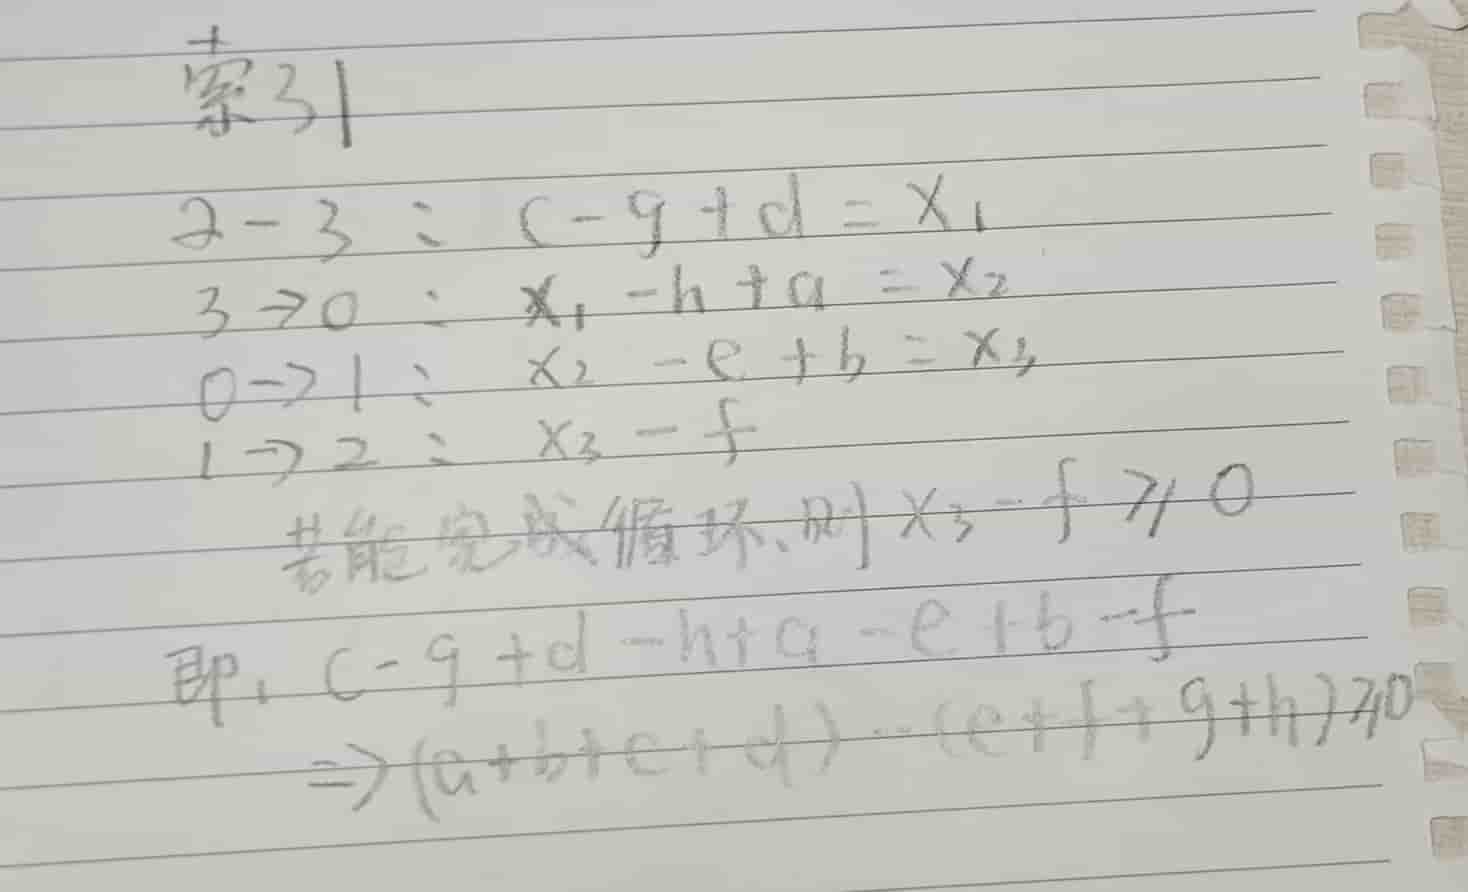 索引
2-3: c-g+d=x₁
3→0: x₁-h+a=x₂
0→1: x₂-e+b=x₃
1→2: x₃-f
若能完成循环、则x₃-f≥0
即, c-g+d-h+a-e+b-f
⇒(a+b+c+d)-(e+f+g+h)≥0